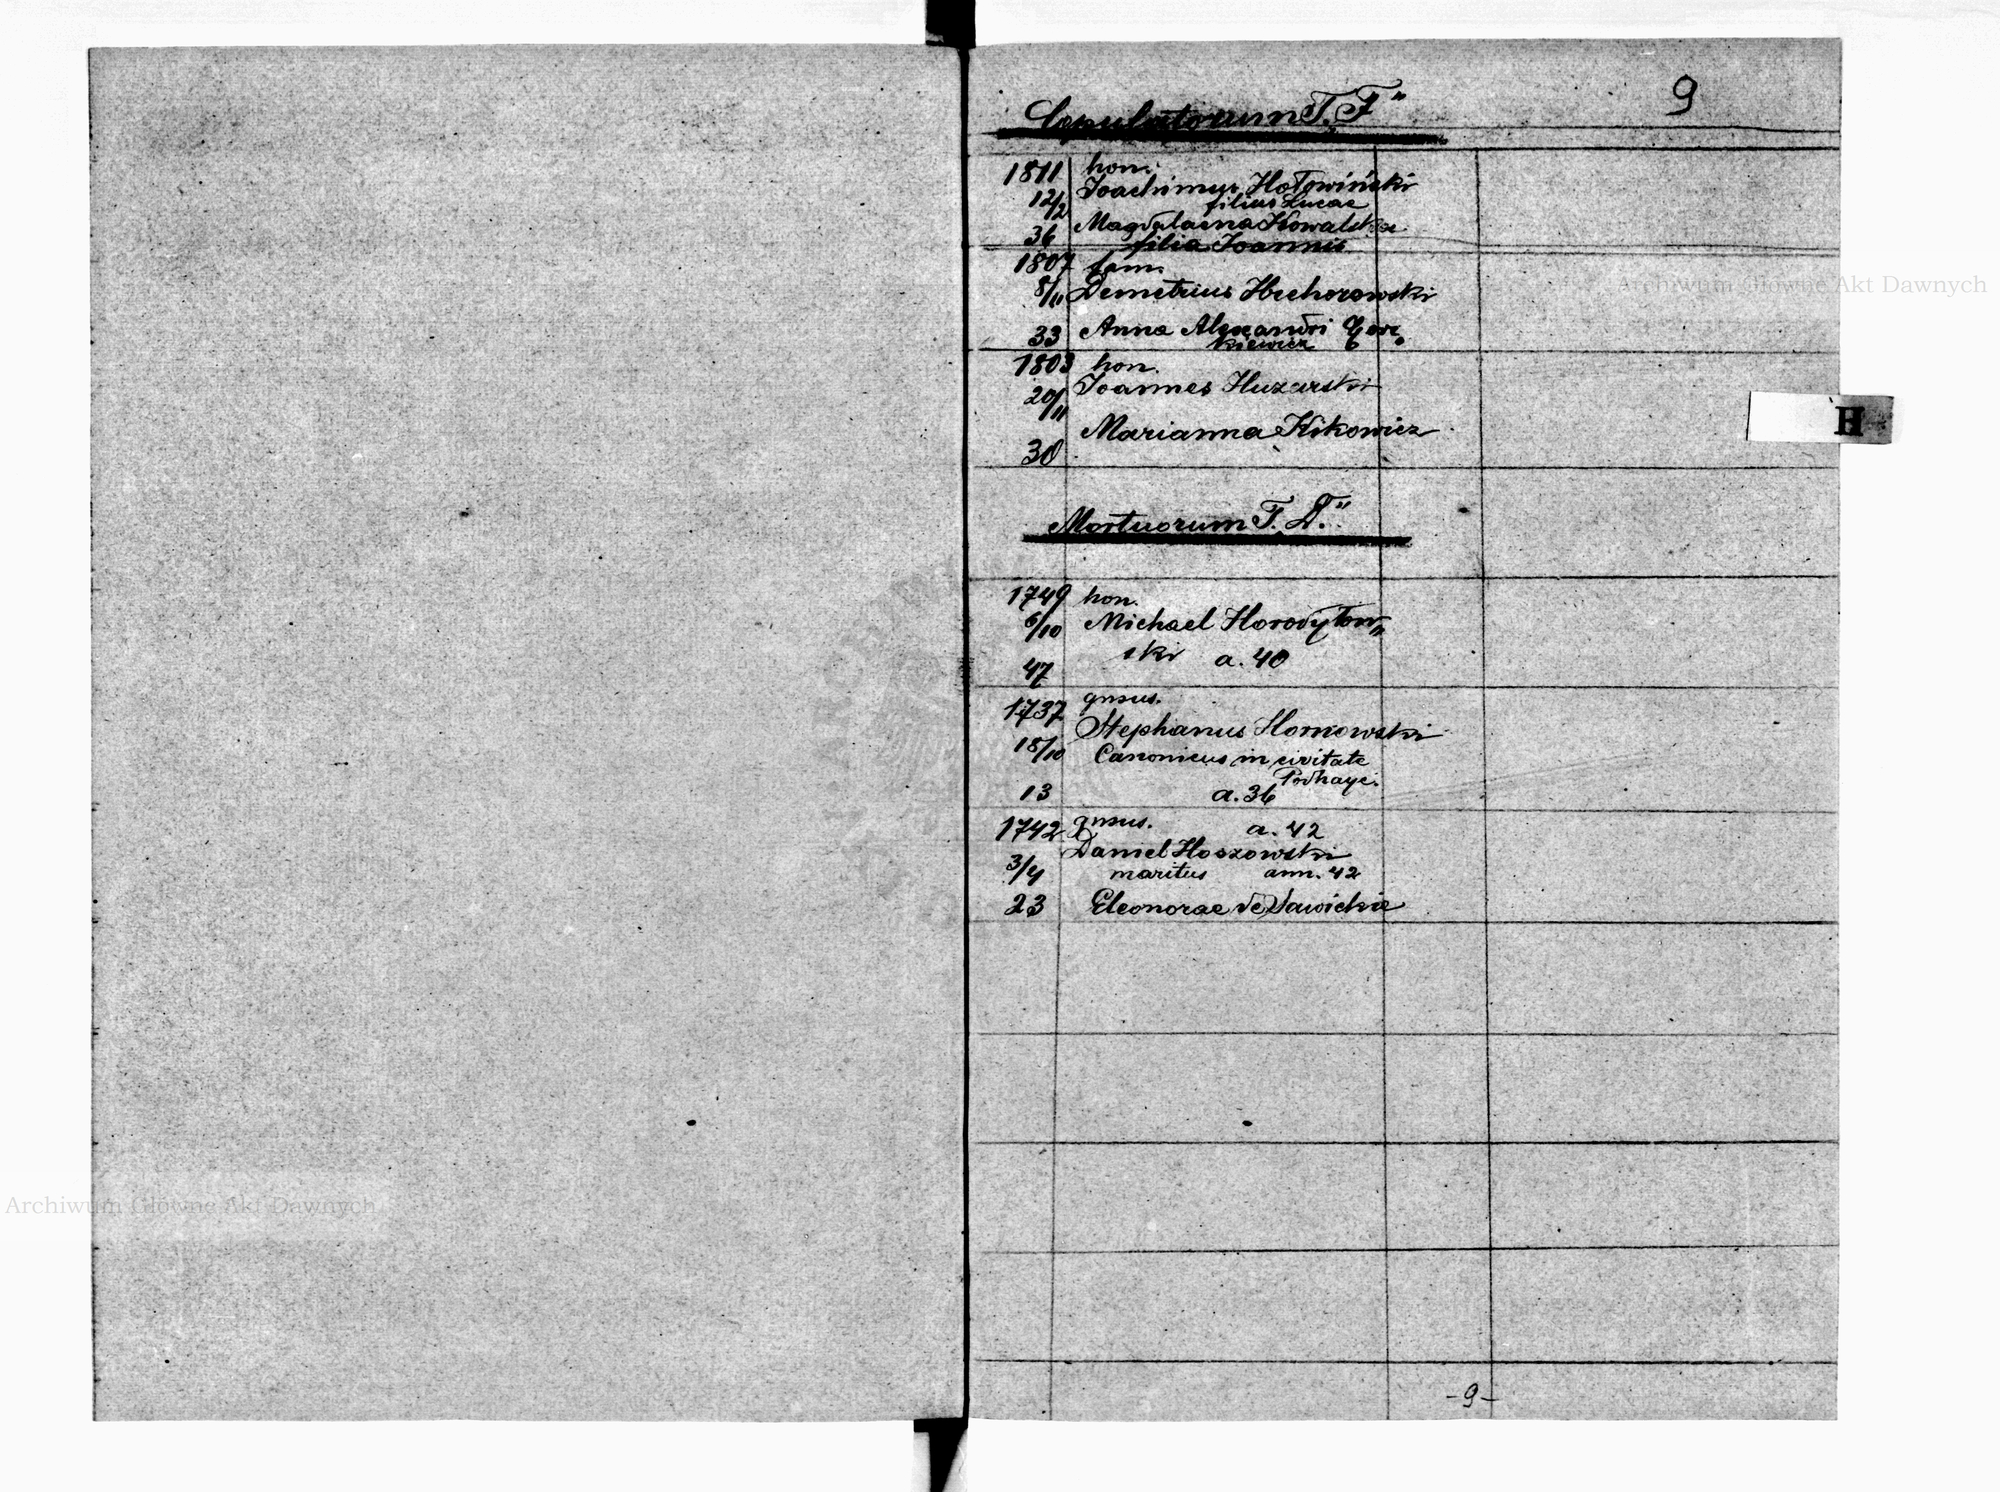 9
Copulatorum T. F"
1811 hon.
Joachimus Hołowiński
12/2 filius Lucae
Magdalaena Kowalska
36 filia Joannis
1807 fam.
8/11 Demetrius Hrehorowski
33 Anna Alexandri
kiewicz
1803 hon.
Joannes Huzarski
20/11
Marianna Kikowicz
30
H
Mortuorum T. D."
1749 hon.
6/10 Michael Horodyłow„
ski a. 40
47
gnsus.
1737
Stephanus Hornowski
18/10 Canonicus in civitate
Podhayc.
13 a. 36
1742 gnsus. a. 42
Daniel Hoszowski
3/4 maritus ann. 42
23 Eleonorae de Sawickie
-9-
Archiwum Główne Akt Dawnych
Archiwum Główne Akt Dawnych